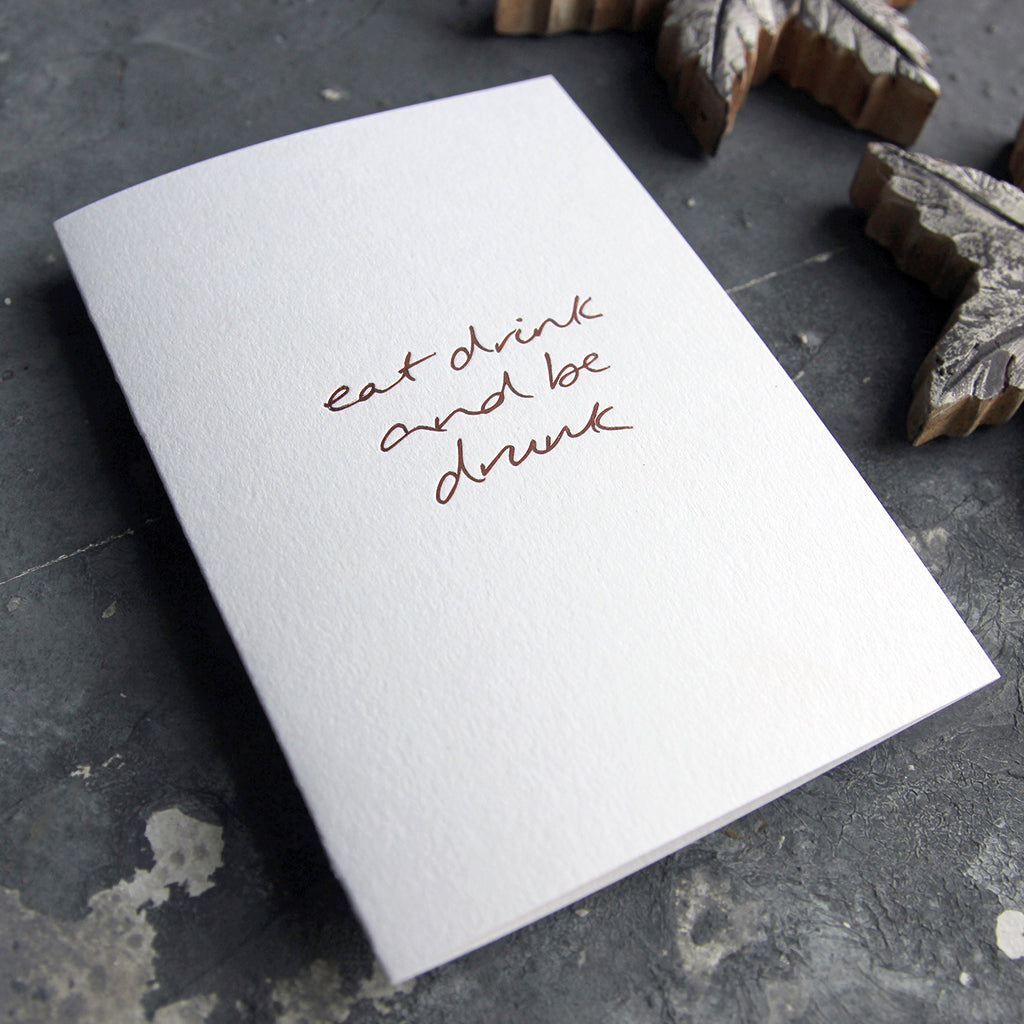 eat drink
and be
drunk